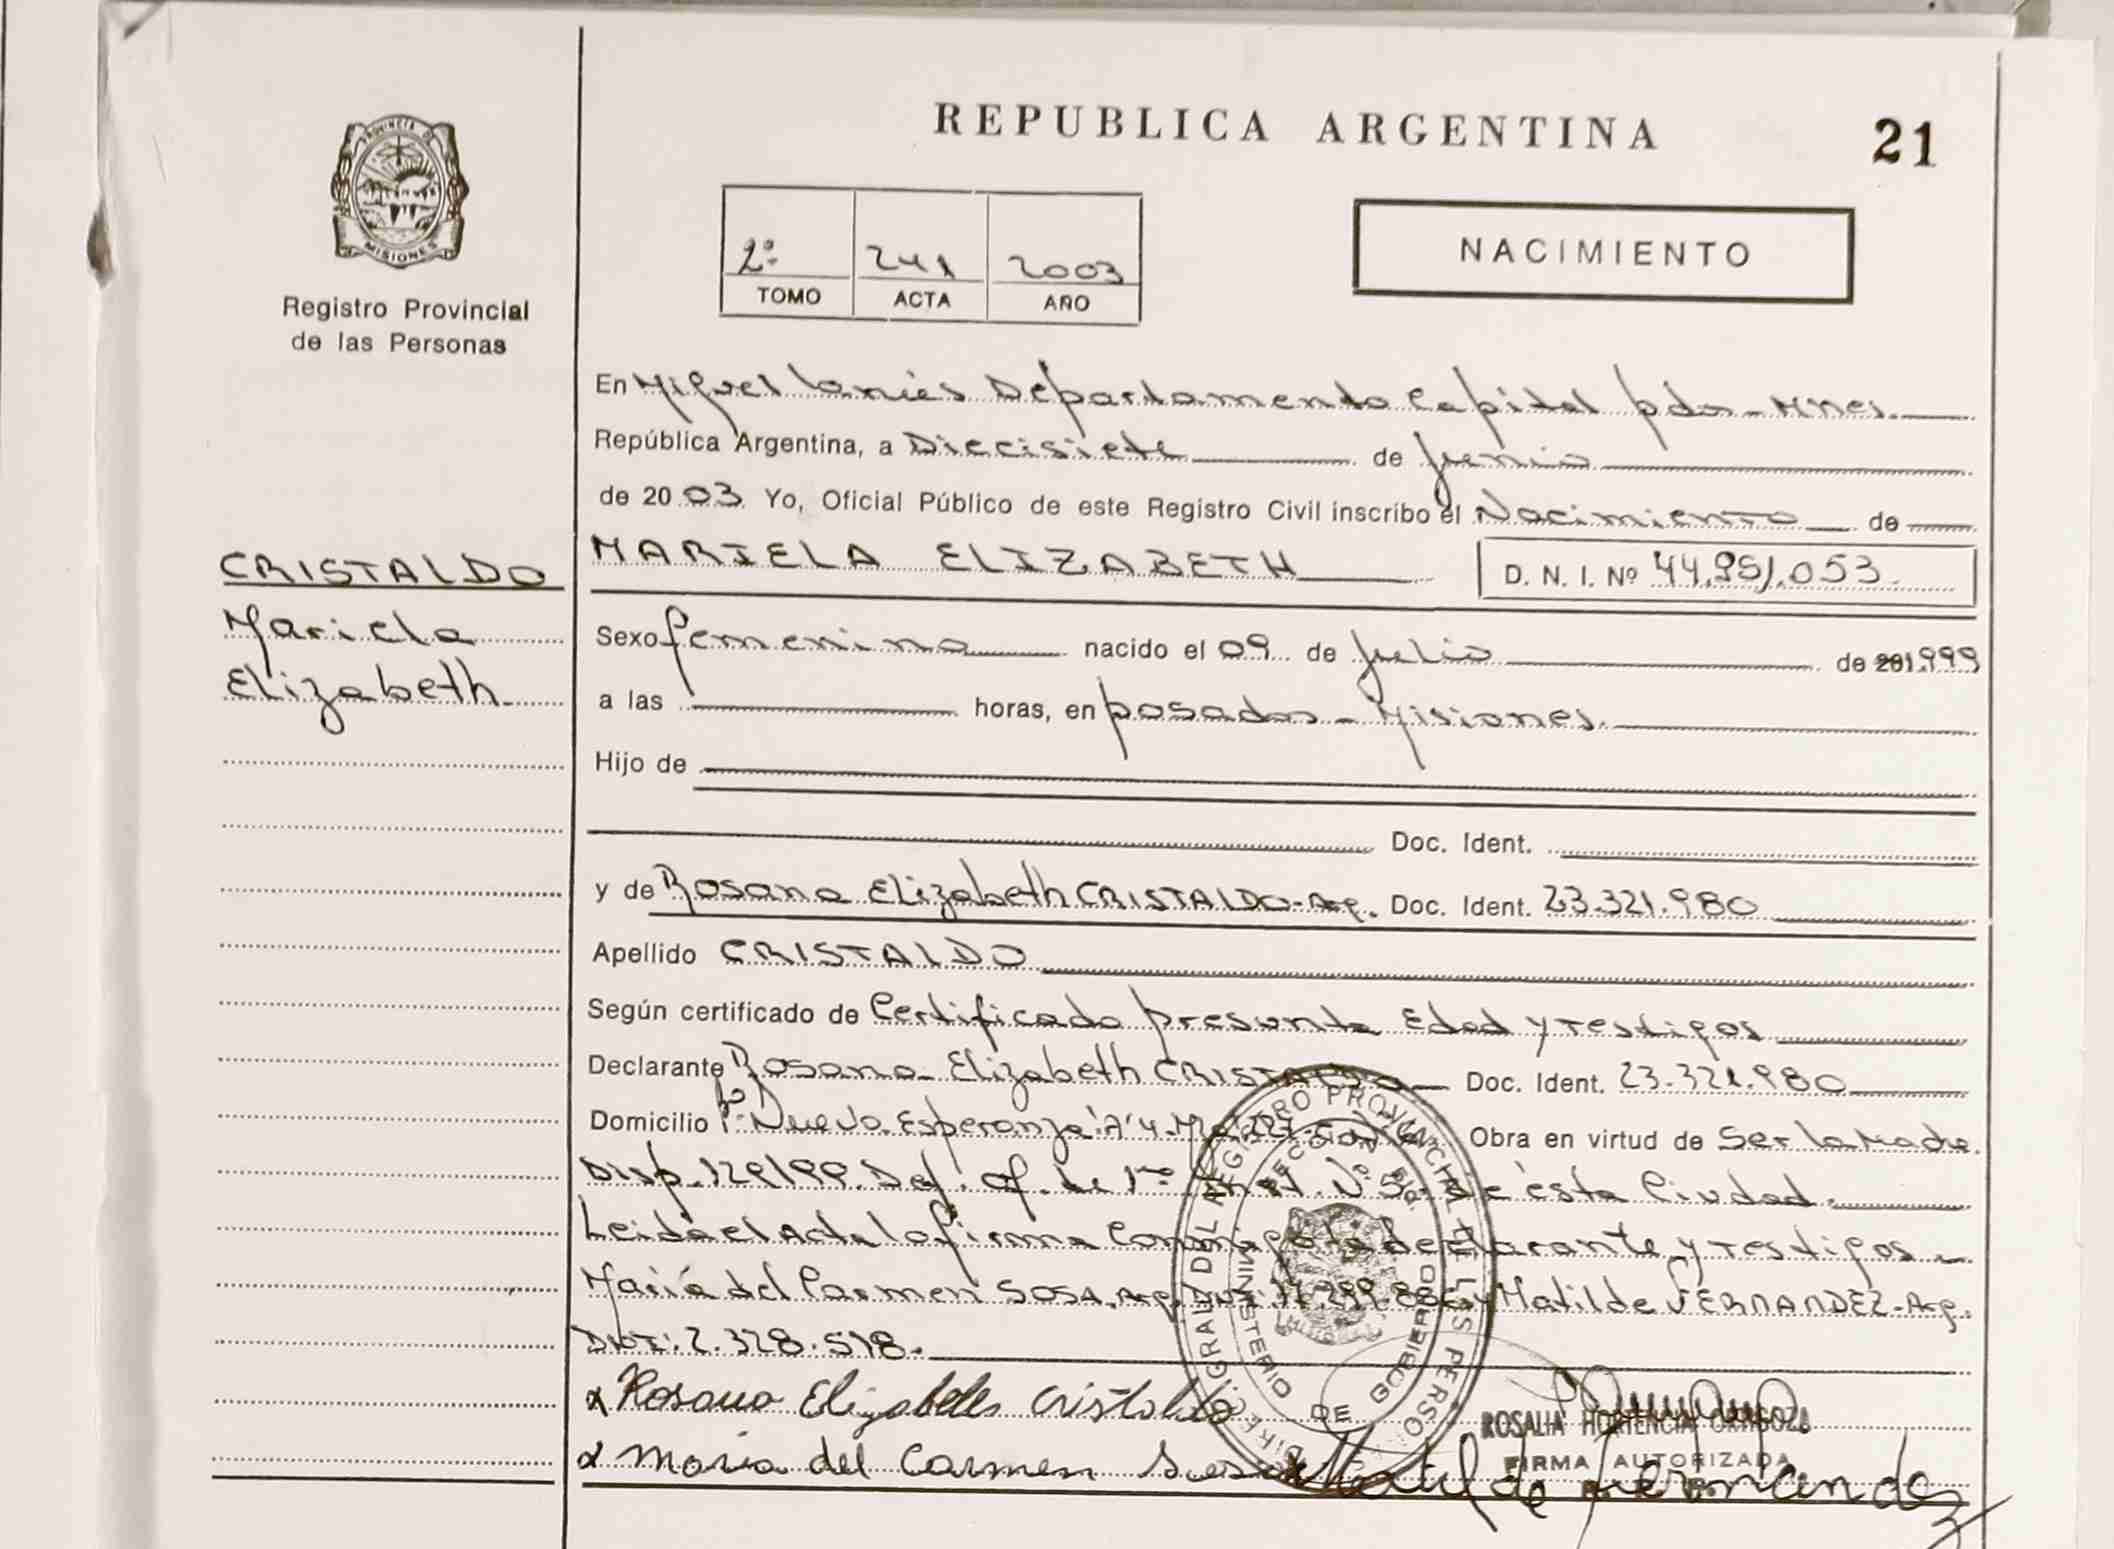 REPUBLICA ARGENTINA
21
PROVINCIA DE
MISIONES
Registro Provincial
de las Personas
2º 241 2003
TOMO ACTA AÑO
NACIMIENTO
En Miguel Lanús Departamento Capital pdas - Mnes.
República Argentina, a Diecisiete de Junio
de 2003 Yo, Oficial Público de este Registro Civil inscribo el Nacimiento de
CRISTALDO
Mariela
Elizabeth
MARIELA ELIZABETH D. N. I. Nº 44.951.053
Sexo femenino nacido el 09 de Julio de 1.999
a las horas, en posadas - Misiones.
Hijo de
Doc. Ident.
y de Rosana Elizabeth CRISTALDO - Arg. Doc. Ident. 23.321.980
Apellido CRISTALDO
Según certificado de Certificado presunta Edad y testigos
Declarante Rosana Elizabeth CRISTALDO Doc. Ident. 23.321.980
Domicilio Bº Nueva Esperanza "A" 4 Obra en virtud de Ser la Madre.
Disp. 129/99. Def. Of. de 1ra Inst. Nº 5 de ésta Ciudad.
Leida el Acta la firma Conmigo la declarante y testigos -
Maria del Carmen SOSA, Arg. y Matilde FERNANDEZ - Arg.
DNI: 2.328.518.
x Rosana Elizabeth Cristaldo
x Maria del Carmen Sosa
Matilde Fernandez
ROSALIA HORTENCIA
FIRMA AUTORIZADA
DEL REGISTRO PROVINCIAL DE LAS PERSO
MINISTERIO DE GOBIERNO